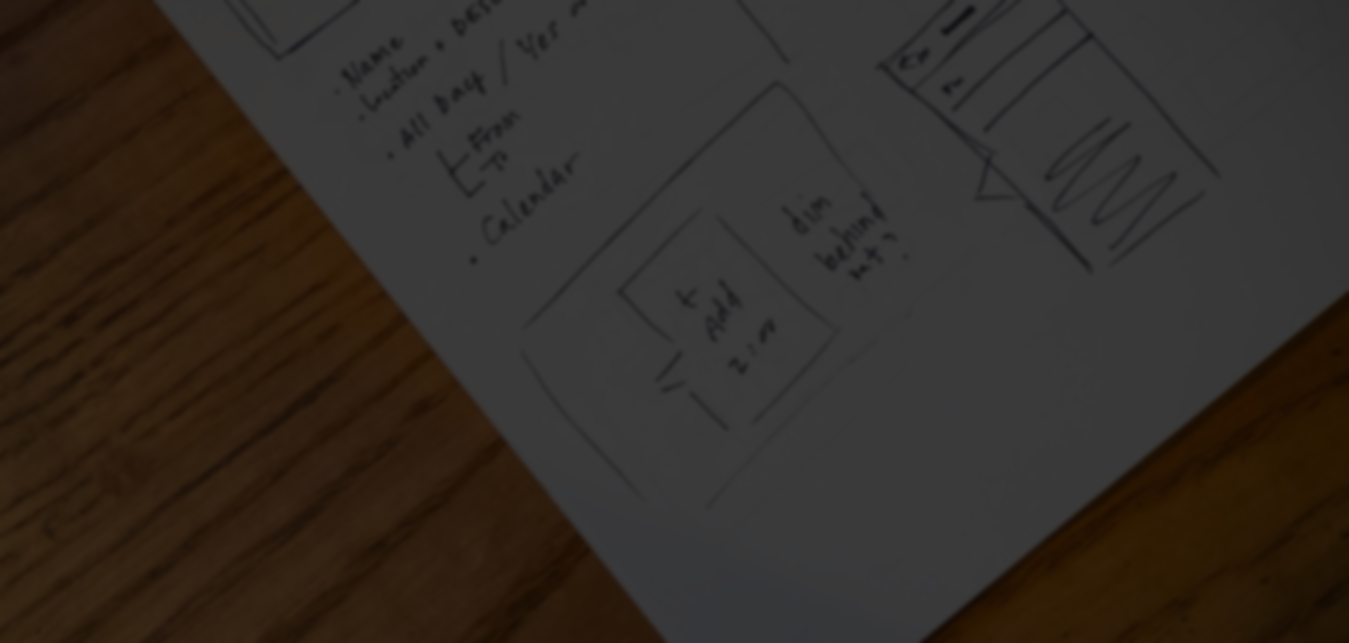 . Name
. Location + Desc
. All Day / Yes
From
To
. Calendar
dim
behind
it?
+
Add